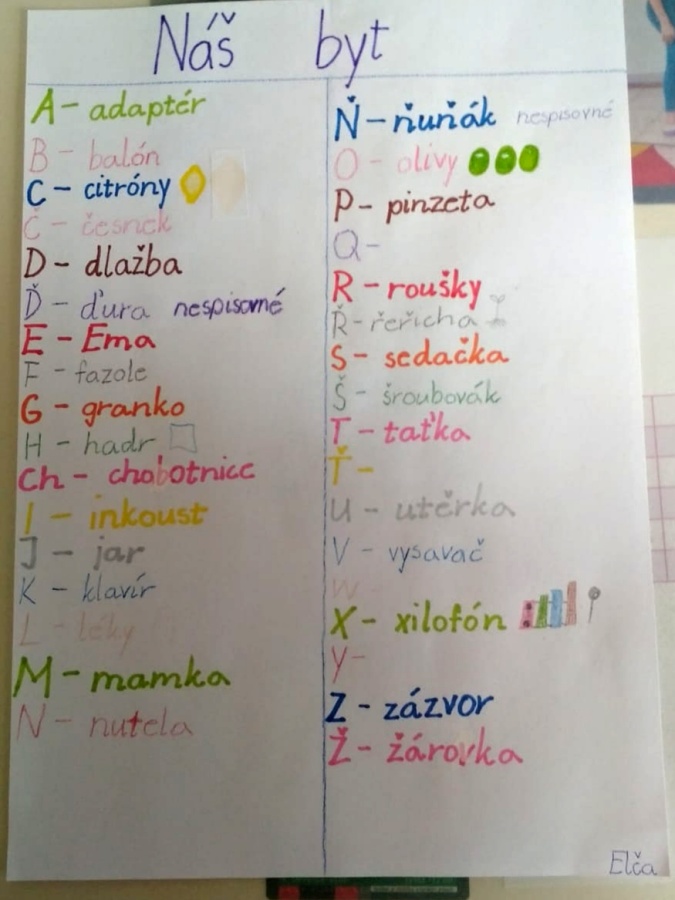 Náš byt
A - adaptér
B - balón
C - citróny
Č - česnek
D - dlažba
Ď - ďura nespisovné
E - Ema
F - fazole
G - granko
H - hadr
Ch - chobotnice
I - inkoust
J - jar
K - klavír
L - léky
M - mamka
N - nutela
Ň - ňuňák nespisovné
O - olivy
P - pinzeta
Q -
R - roušky
Ř - řeřicha
S - sedačka
Š - šroubovák
T - taťka
Ť -
U - utěrka
V - vysavač
W -
X - xilofón
Y -
Z - zázvor
Ž - žárovka
Elča